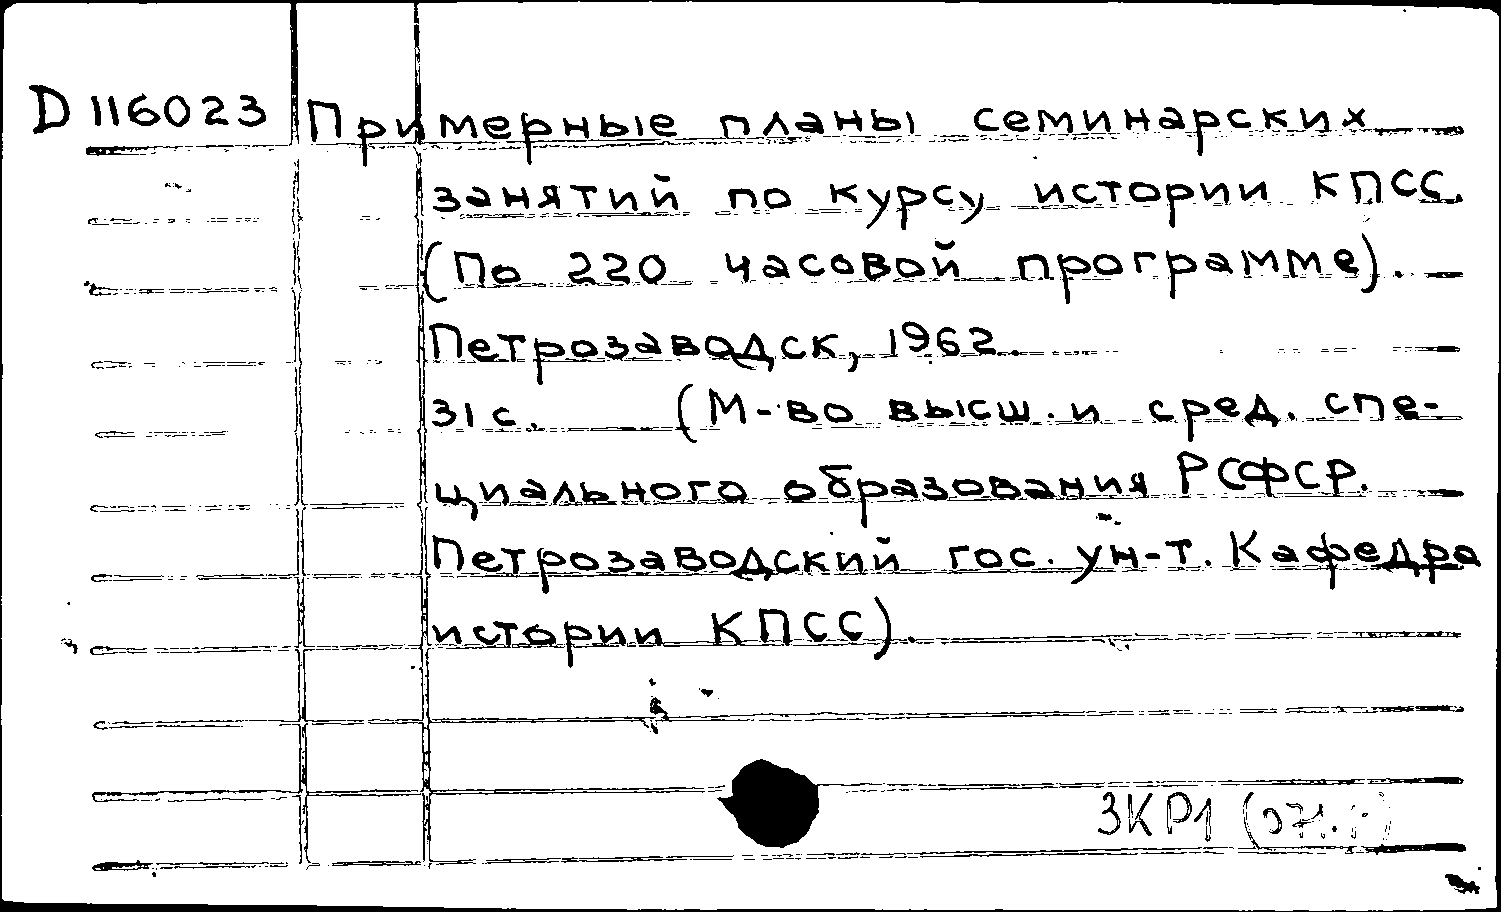 D 116023 Примерные планы семинарских
занятий по курсу истории КПСС.
(По 220 часовой программе).
Петрозаводск, 1962.
31 с. (М-во высш. и сред. спе-
циального образования РСФСР.
Петрозаводский гос. ун-т. Кафедра
истории КПСС).
3КР1